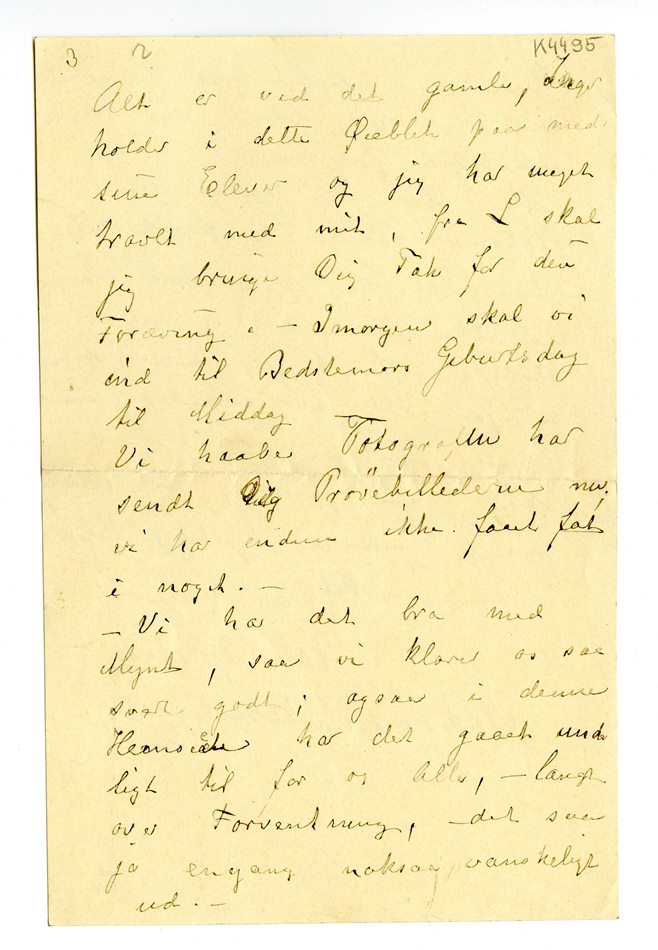 3 2 K4495
Alt er ved det gamle,
holder i dette Øieblik paa med
sine Elever og jeg har meget
travlt med mit, fra L skal
jeg bringe Dig Tak for den
Foræring. – Imorgen skal vi
ind til Bedstemors Geburtsdag
til Middag
Vi haaber Fotografen har
sendt Dig Prövebillederne nu,
vi har endnu ikke faaet fat
i noget. –
– Vi har det bra med
Mynt, saa vi klarer os saa
svært godt; ogsaa i denne
Henseende har det gaaet under
ligt til for os Alle, – langt
over Forventning, – det saa
jo engang noksaa vanskeligt
ud. –